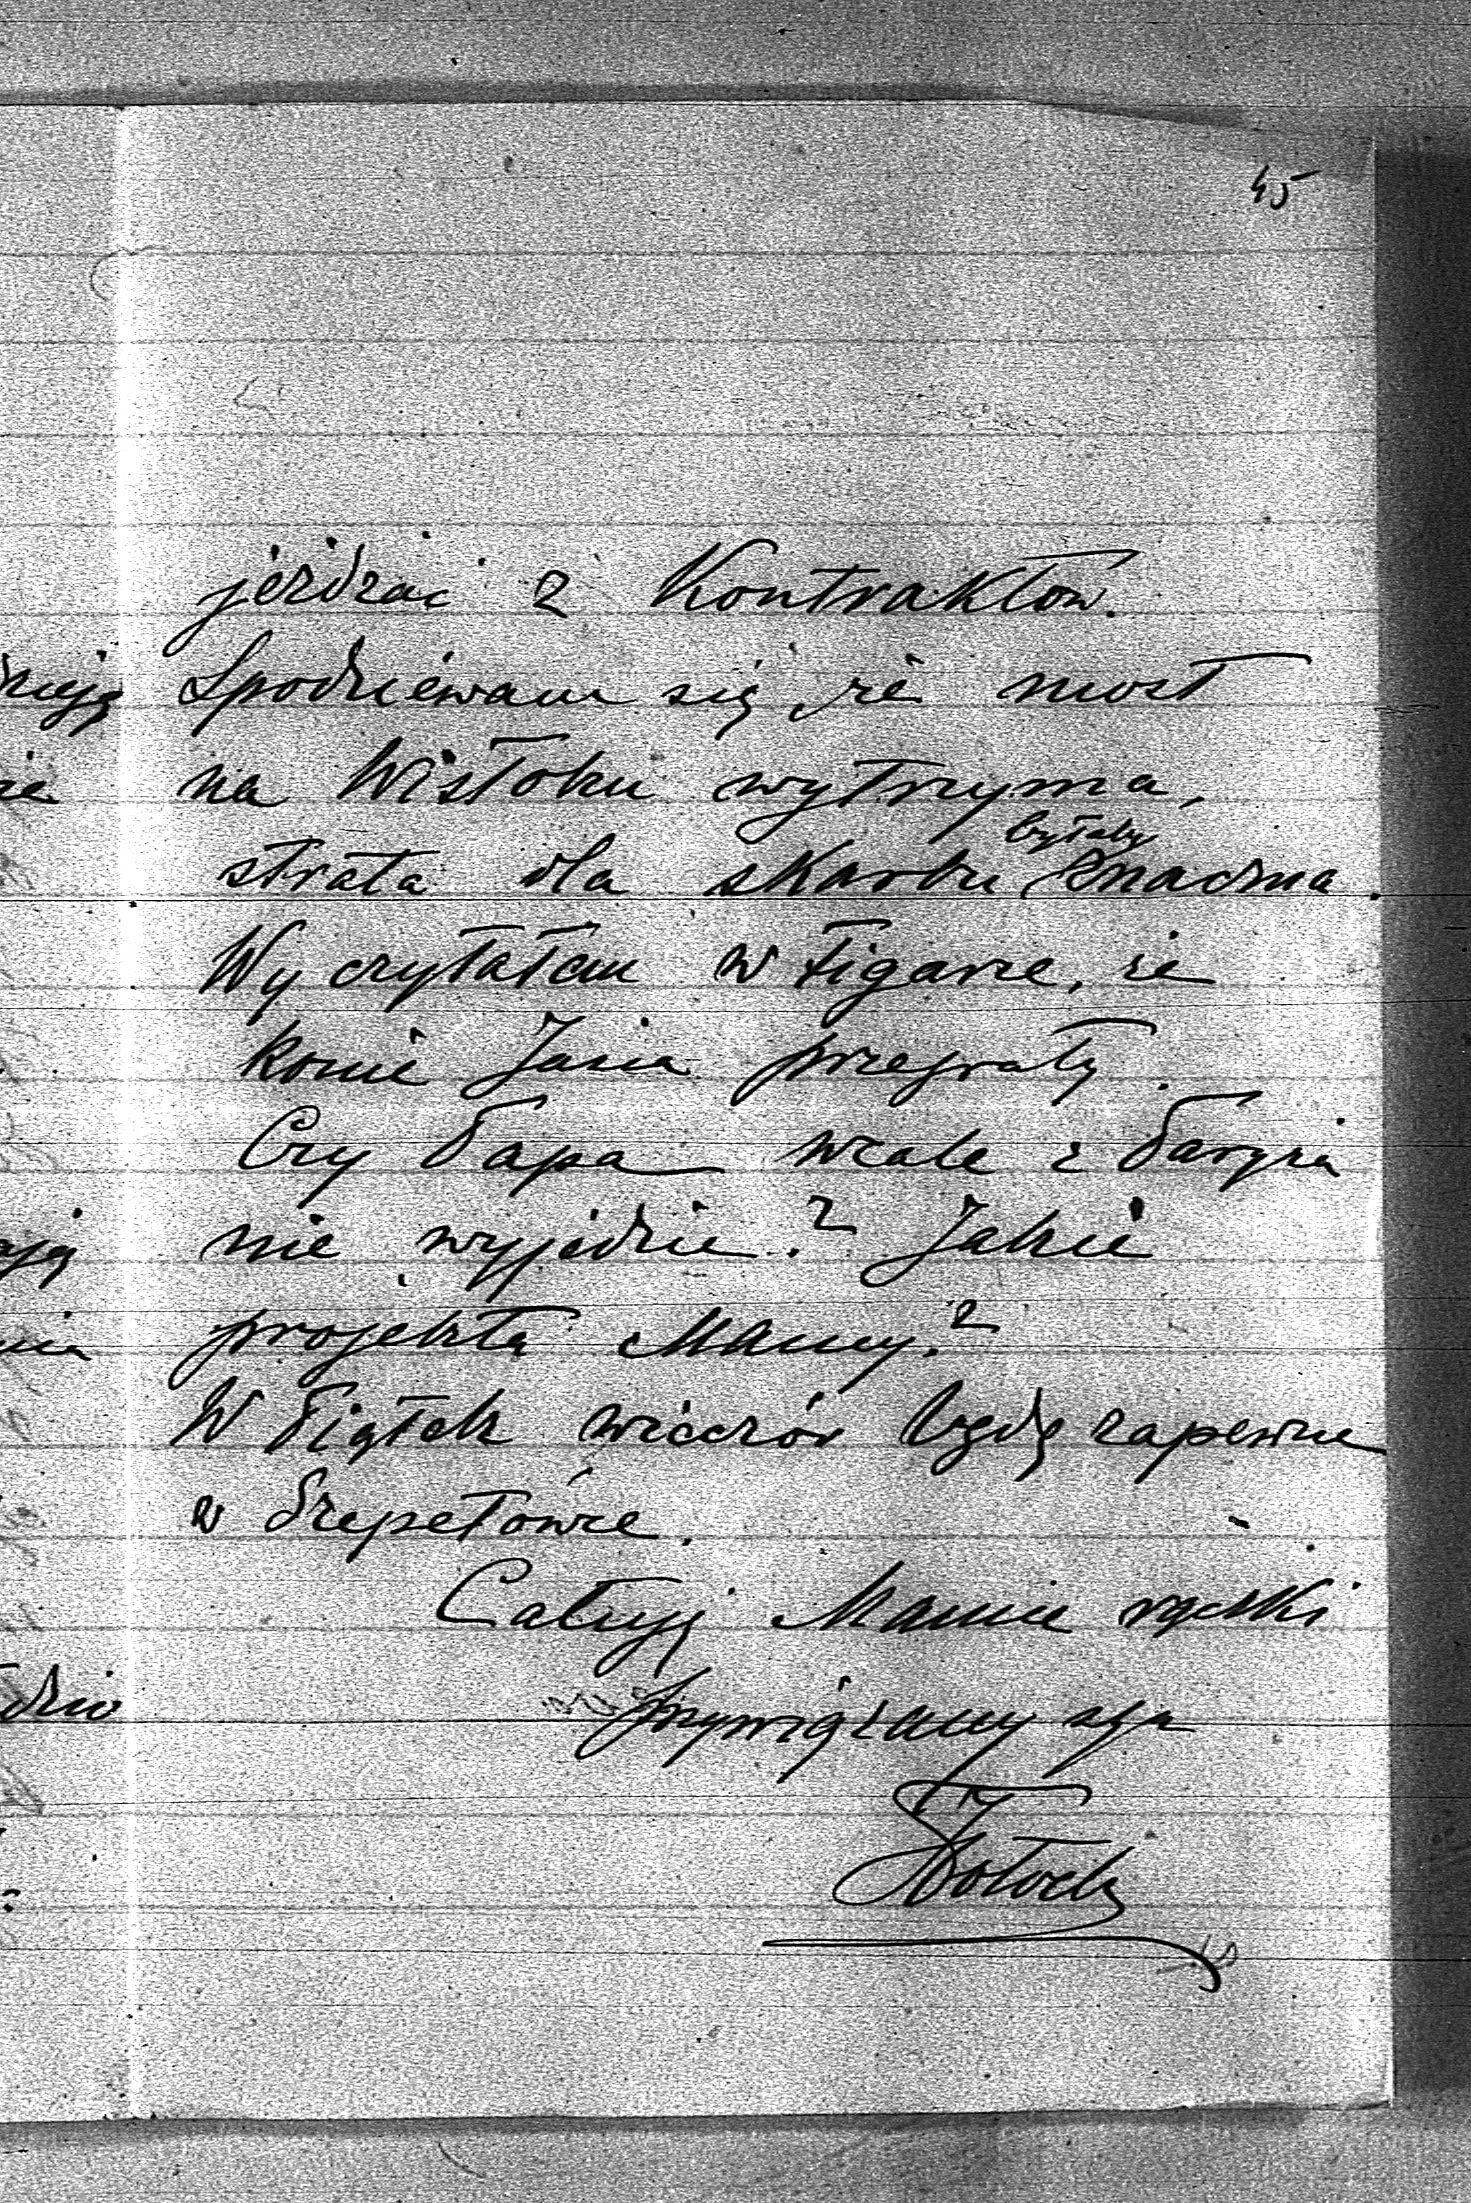 45
jeżdżać z Kontraktów.
Spodziewam się że most
na Wisłoku wytrzyma,
byłaby
strata dla skarbu znaczna.
Wyczytałem w Figarze, że
konie Jasia przegrały.
Czy Papa wcale z Paryża
nie wyjedzie? Jakie
projekta Mamy?
W Piątek wieczór będę zapewne
w Szepetówce.
Całuję Mamie rączki
przywiązany syn